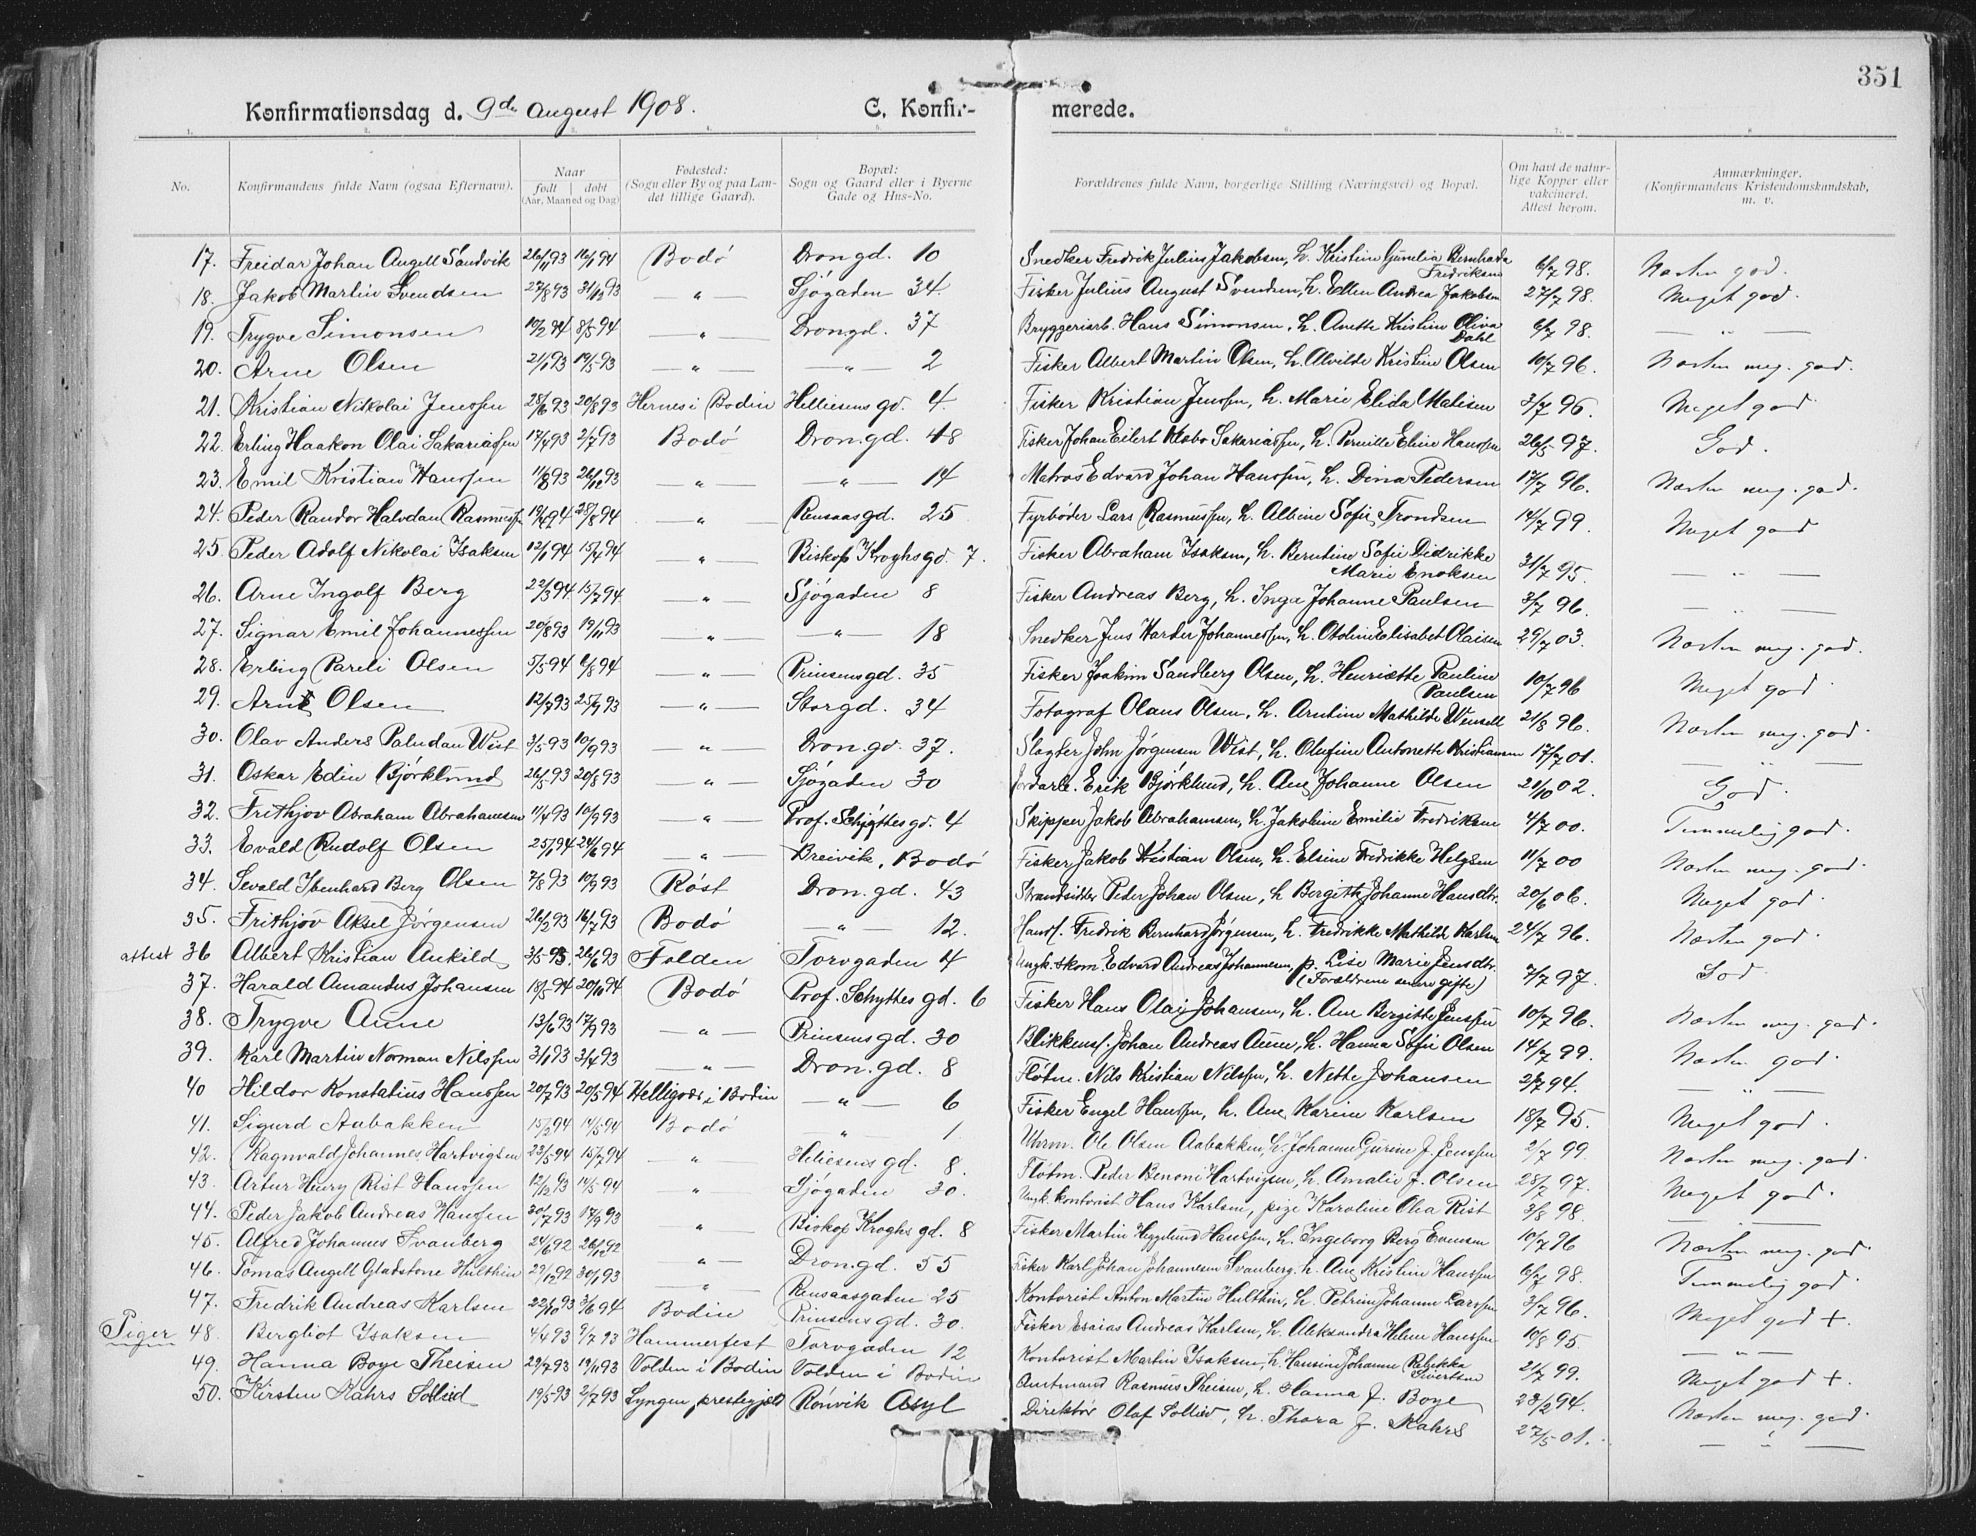 351
Konfirmationsdag d. 9de August 1908.
C. Konfirmerede.
1. 2. 3. 4. 5. 6. 7. 8.
No.
Konfirmandens fulde Navn (ogsaa Efternavn).
Naar født døbt (Aar, Maaned og Dag)
Fødested: (Sogn eller By og paa Landet tillige Gaard).
Bopæl: Sogn og Gaard eller i Byerne Gade og Hus-No.
Forældrenes fulde Navn, borgerlige Stilling (Næringsvei) og Bopæl.
Om havt de naturlige Kopper eller vakcineret. Attest herom.
Anmærkninger. (Konfirmandens Kristendomskundskab, m. v.
17. Freidar Johan Angell Sandvik 26/11 93 16/1 94 Bodø Dron.gd. 10 Snedker Fredrik Julius Jakobsen, h. Kristine Gunelia Bernharda Fredriksen 6/7 98. Næsten god.
18. Jakob Martin Svendsen 27/8 93 31/12 93 " Sjøgaden 34. Fisker Julius August Svendsen, h. Ellen Andrea Jakobsen 27/7 98. Meget god.
19. Trygve Simonsen 8/5 94 " Drongd. 37 Bryggeriarb. Hans Simonsen, h. Anette Kristine Oliva Dahl 6/7 98. "
20. Arne Olsen 2/1 93 19/5 93 " " 2 Fisker Albert Martin Olsen, h. Alvilde Kristine Olsen 10/7 96. Næsten meg. god.
21. Kristian Nikolai Jenssen 28/6 93 20/8 93 Hernes i Bodin Helliesens gd. 4. Fisker Kristian Jenssen, h. Marie Elida Matisen 3/7 96. Meget god
22. Erling Haakon Olai Sakariassen 17/4 93 2/7 93 Bodø Dron.gd. 48 Fisker Johan Eilert Klæbo Sakariassen, h. Pernille Eline Hanssen 26/5 97. God.
23. Emil Kristian Hanssen " " 14 Matros Edvard Johan Hanssen, h. Dina Pedersen 17/7 96. Næsten meg. god.
24. Peder Randor Halvdan Rasmussen 28/8 94 " Rensaasgd. 25 Fyrbøder Lars Rasmussen, h. Albine Sofie Trondsen 14/7 99. Meget god
25. Peder Adolf Nikolai Isaksen 12/1 94 15/4 94 " Biskop Kroghs gd. 7. Fisker Abraham Isaksen, h. Berntine Sofie Didrikke Marie Enoksen 31/7 95. "
26. Arne Ingolf Berg 22/3 94 15/7 94 " Sjøgaden 8 Fisker Andreas Berg, h. Inga Johanne Paulsen 3/7 96. "
27. Signar Emil Johannessen 20/8 93 19/11 93 " " 18 Snedker Jens Harder Johannessen, h. Otoline Elisabet Olaisen 29/7 03. Næsten meg. god.
28. Erling Pareli Olsen 5/5 94 6/8 94 " Prinsensgd. 35 Fisker Joakim Sandberg Olsen, h. Henriætte Pauline Paulsen 10/7 96 Meget god
29. Arne Olsen 12/7 93 " Storgd. 34 Fotograf Olaus Olsen, h. Arntine Mathilde Wensell 21/8 96. Næsten meg. god.
30. Olav Anders Paludan Wist 3/5 93 10/9 93 " Dron.gd. 37. Slagter John Jørgensen Wist, h. Olufine Antonette Kristiansen 17/7 01. "
31. Oskar Edin Bjørklund 26/5 93 20/8 93 " Sjøgaden 30 Jordarb. Erik Bjørklund, h. Ane Johanne Olsen 21/10 02. God.
32. Frithjov Abraham Abrahamsen 11/4 93 10/9 93 " Prof. Schyttesgd. 4 Skipper Jakob Abrahamsen, h. Jakobine Emilie Fredriksen 4/7 00. Temmelig god.
33. Evald Rudolf Olsen 25/1 94 24/6 94 " Breivik, Bodø Fisker Jakob Kristian Olsen, h. Elsine Fredrikke Helgsen 11/7 00 Næsten meg. god.
34. Sevald Ibenhard Berg Olsen 7/8 93 10/9 93 Røst Dron.gd. 43 Strandsidder Peder Johan Olsen, h. Bergitte Johanne Hansdtr. 20/6 06. Meget god
35. Frithjov Aksel Jørgensen 26/2 93 16/7 93 Bodø " 12. Handl. Fredrik Bernhard Jørgensen, h. Fredrikke Mathilde Karlsen 24/7 96. Næsten god.
attest 36 Albert Kristian Ankild 26/6 93 Folden Torvgaden 4 Ungk. skom. Edvard Andreas Johannesen, p. Lise Marie Jensdtr. (Forældrene senere gifte) 7/7 97. God
37. Harald Amandus Johansen 18/5 94 20/11 94 Bodø Prof. Schyttes gd. 6 Fisker Hans Olai Johansen, h. Ane Bergitte Jenssen 10/7 96. Næsten meg. god.
38. Trygve Aune 13/6 93 17/9 93 " Prinsensgd. 30 Blikkensl. Johan Andreas Aune, h. Hanna Sofie Olsen 14/7 99. Næsten god
39. Karl Martin Norman Nilssen 3/1 93 3/4 93 " Dron.gd. 8 Fløtm. Nils Kristian Nilssen, h. Nette Johansen 2/7 94. "
40 Hildor Konstatius Hanssen 20/7 93 20/5 94 Helligvær i Bodin " 6 Fisker Engel Hanssen, h. Ane Karine Karlsen 18/7 95. Meget god.
41. Sigurd Aabakken 15/2 94 14/5 94 Bodø " 1 Uhrm. Ole Olsen Aabakken, h. Johanne Gurine J. Jenssen 2/7 99. Næsten meg. god.
42. Ragnvald Johannes Hartvigsen 23/5 94 15/7 94 " Heliesens gd. 8. Fløtm. Peder Benoni Hartvigsen, h. Amalie J. Olsen 28/7 97. Meget god.
43. Artur Henry Rist Hanssen 12/12 93 14/5 94 " Sjøgaden 30. Ungk. kontorist Hans Karlsen, pige Karoline Olea Rist 3/8 98 "
44. Peder Jakob Andreas Hanssen 30/7 93 17/9 93 " Biskop Kroghs gd. 8 Fisker Martin Heggelund Hanssen, h. Ingeborg Berg Evensen 10/7 96 Næsten meg. god
45. Alfred Johannes Svanberg 24/6 92 26/12 92 " Dron.gd. 55 Fisker Karl Johan Johannesen Svanberg, h. Ane Kristine Hanssen 6/7 98. Temmelig god
46. Tomas Angell Gladstone Hulthin 29/12 92 30/1 93 " Rensaasgaden 25 Kontorist Anton Martin Hulthin, h. Petrine Johanne Larssen 3/7 96. Meget god +.
47. Fredrik Andreas Karlsen 22/10 93 3/6 94 Bodin Prinsens gd. 30. Fisker Esaias Andreas Karlsen, h. Aleksandra Helene Hanssen 10/8 95. "
Piger 48. Bergliot Isaksen 4/4 93 9/7 93 Hammerfest Torvgaden 12 Kontorist Martin Isaksen, h. Hansine Johanne Rebekka Sivertsen 21/7 99. Meget god +.
49. Hanna Boye Theisen 29/7 93 19/11 93 Volden i Bodin Volden i Bodin Amtmand Rasmus Theisen, h. Hanna J. Boye 23/2 94. Næsten meg. god.
50. Kirsten Kahrs Sollied 19/5 93 2/7 93 Lyngen prestegjeld Rønvik Asyl Direktør Olaf Sollied, h. Thora J. Kahrs 27/5 01. "